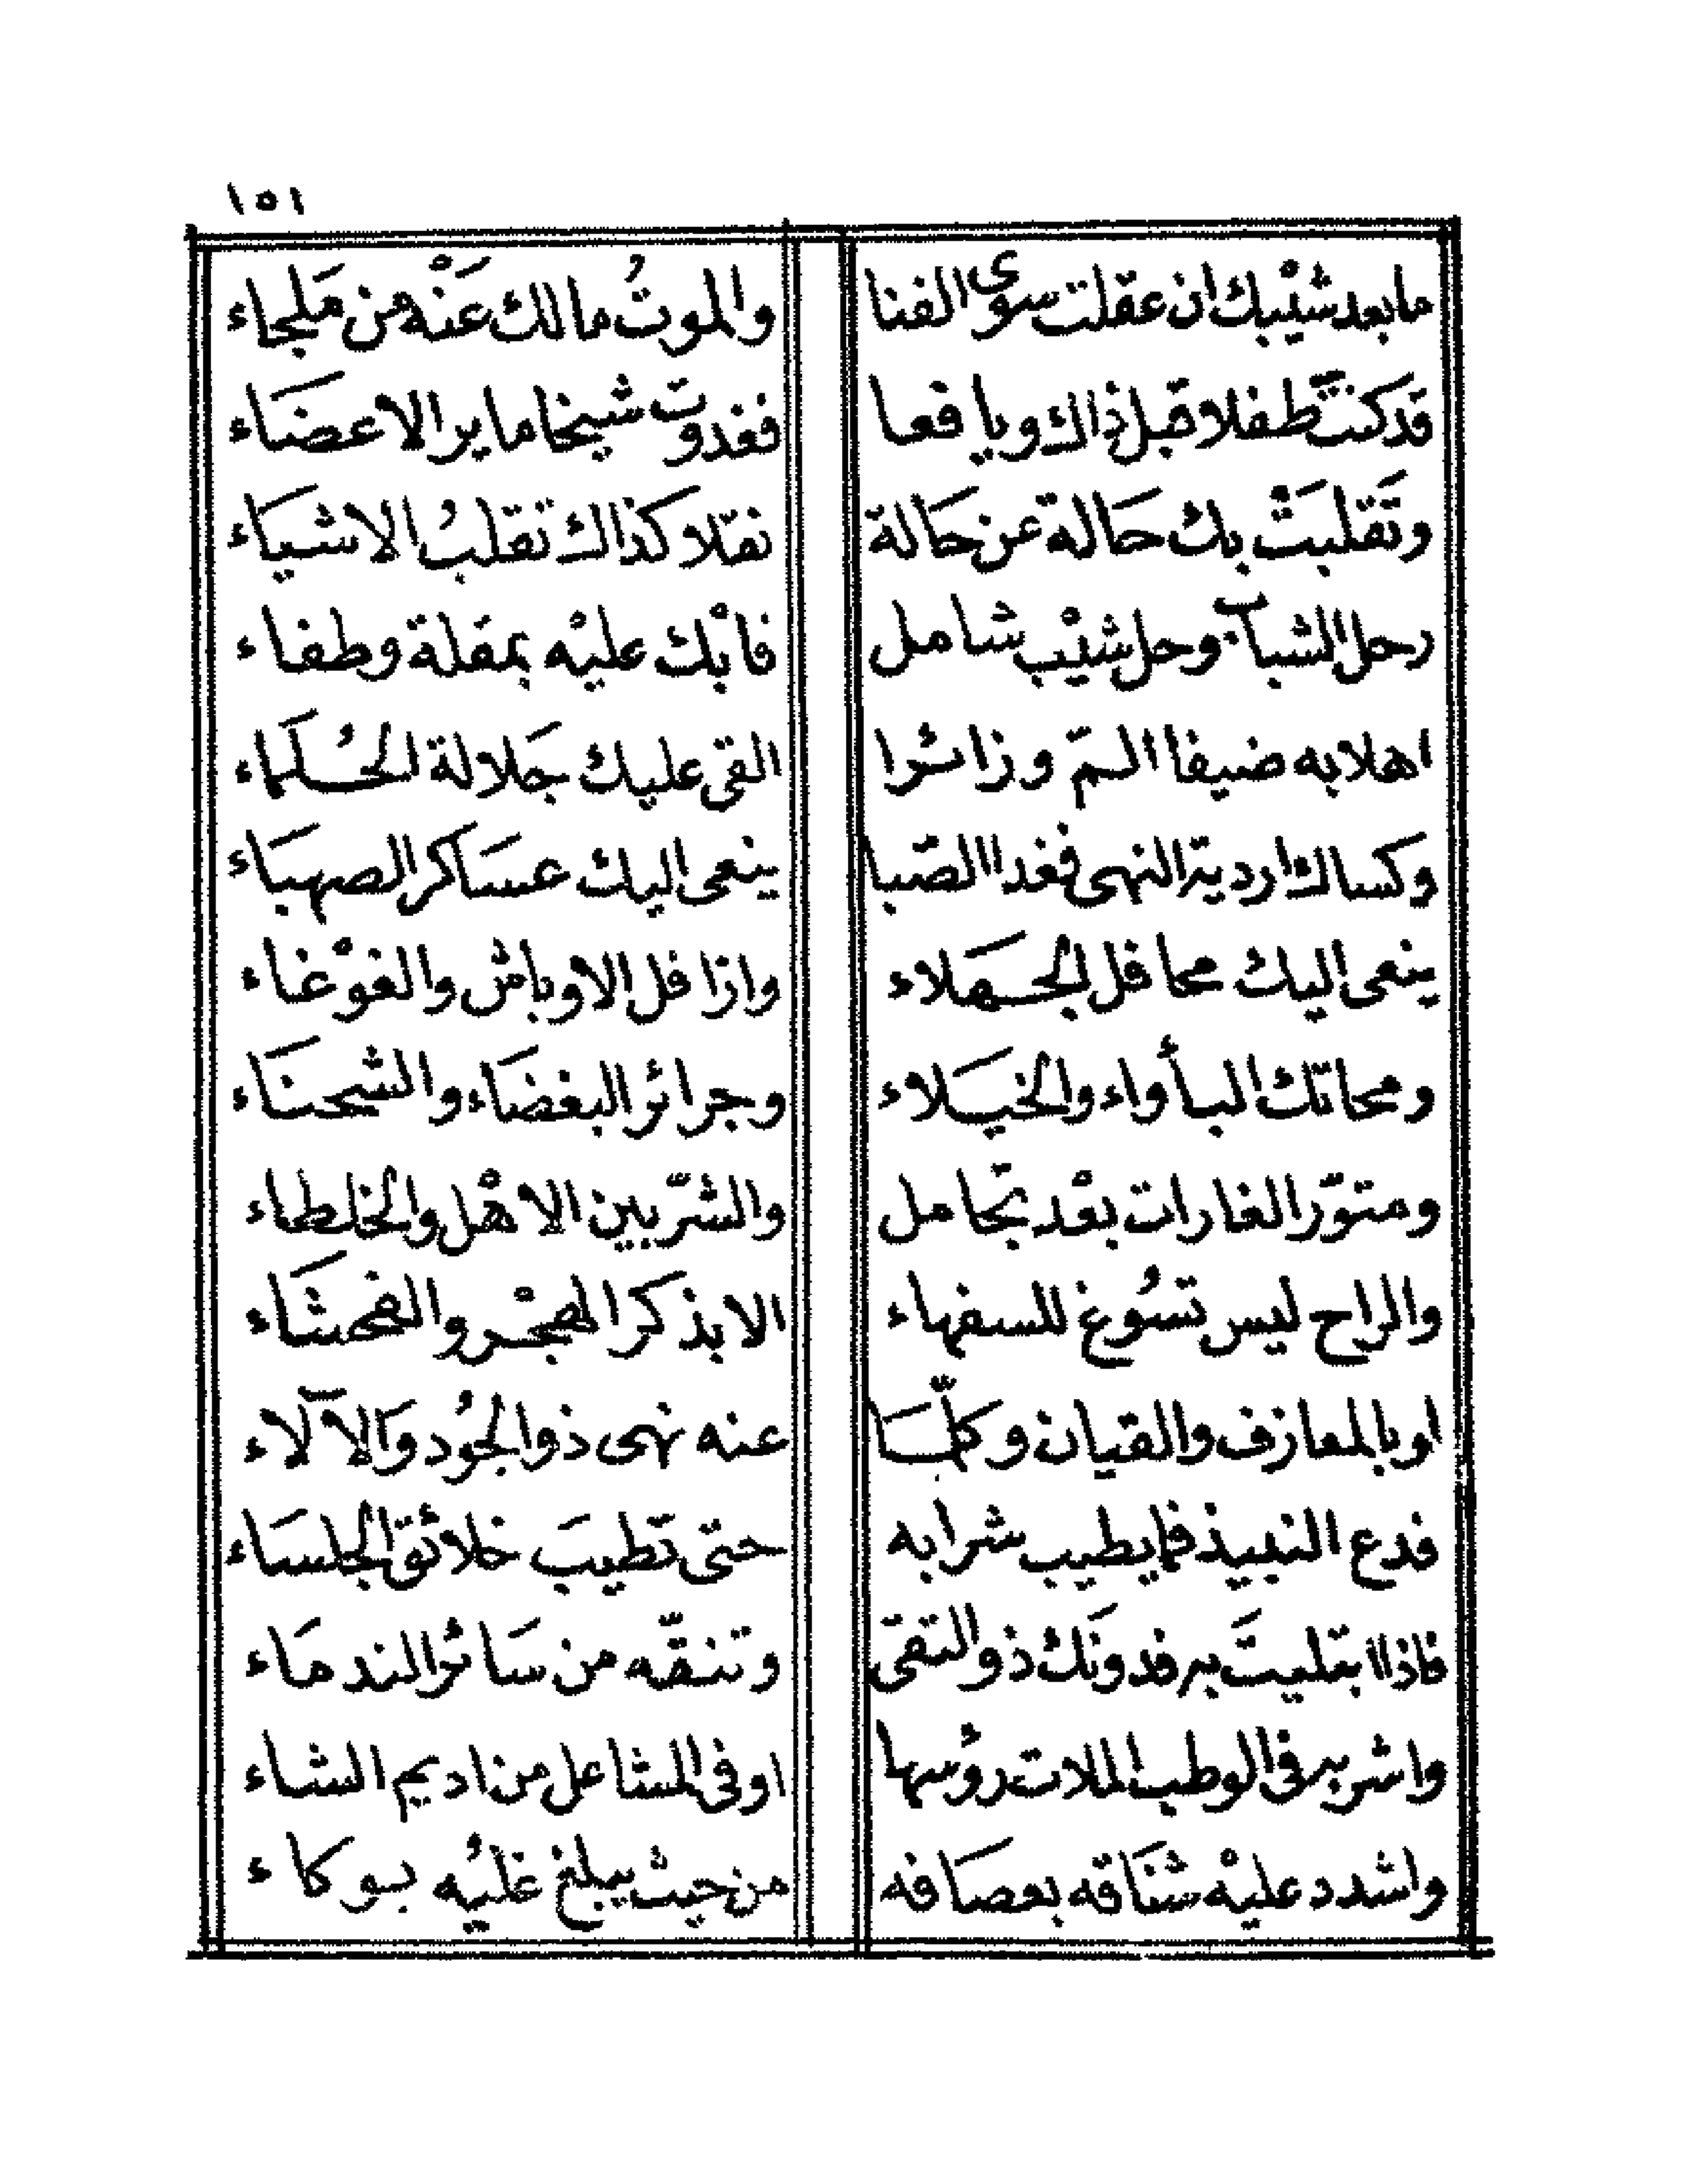 ١٥١
مابعد شيْبك ان عقلت سوى الفنا والموتُ مالك عَنْه من مَلجاء
قد كنتَ طفلا قبل ذاك ويافعا فغدوت شيخا مايرالاعضَاء
وتَقلبَتْ بك حَالة عن حَالة نقلا كذاك تقلبُ الاشيَاء
رحل الشباب وحل شيْب شامل فابْك عليْه بمقلة وطفاء
اهلا به ضيفا المّ وزائرا القى عليك جَلالة الحُكمَاء
وكساك اردية النهى فغدا الصّبا ينعى اليك عسَاكر الصهبَاء
ينعى اليك محافل الجهَلاء واذا فل الاوباش والغوْغاء
ومحاتّك البأواء والخيَلاء وجرائر البغضَاء والشحنَاء
ومتوّر الغارات بعْد تجامل والشرّ بين الاهْل والخلطاء
والراح ليس تسُوغ للسفهاء الا بذكر الهجْر والفحشَاء
او بالمعازف والقيان وكلّمَا عنه نهى ذو الجُود وَالآلَاء
فدع النبيذ فما يطيب شرابه حتى تطيبَ خلائق الجلسَاء
فاذا ابتليتَ به فدونَك ذو التقى وتنقّه من سَائر الندمَاء
واشربه فى الوطب الملات رؤسها اوفى المشاعل من اديم الشاء
واشدد عليْه شنَاقه بعصَافه من حيث يبلغ غليُه بوكاء